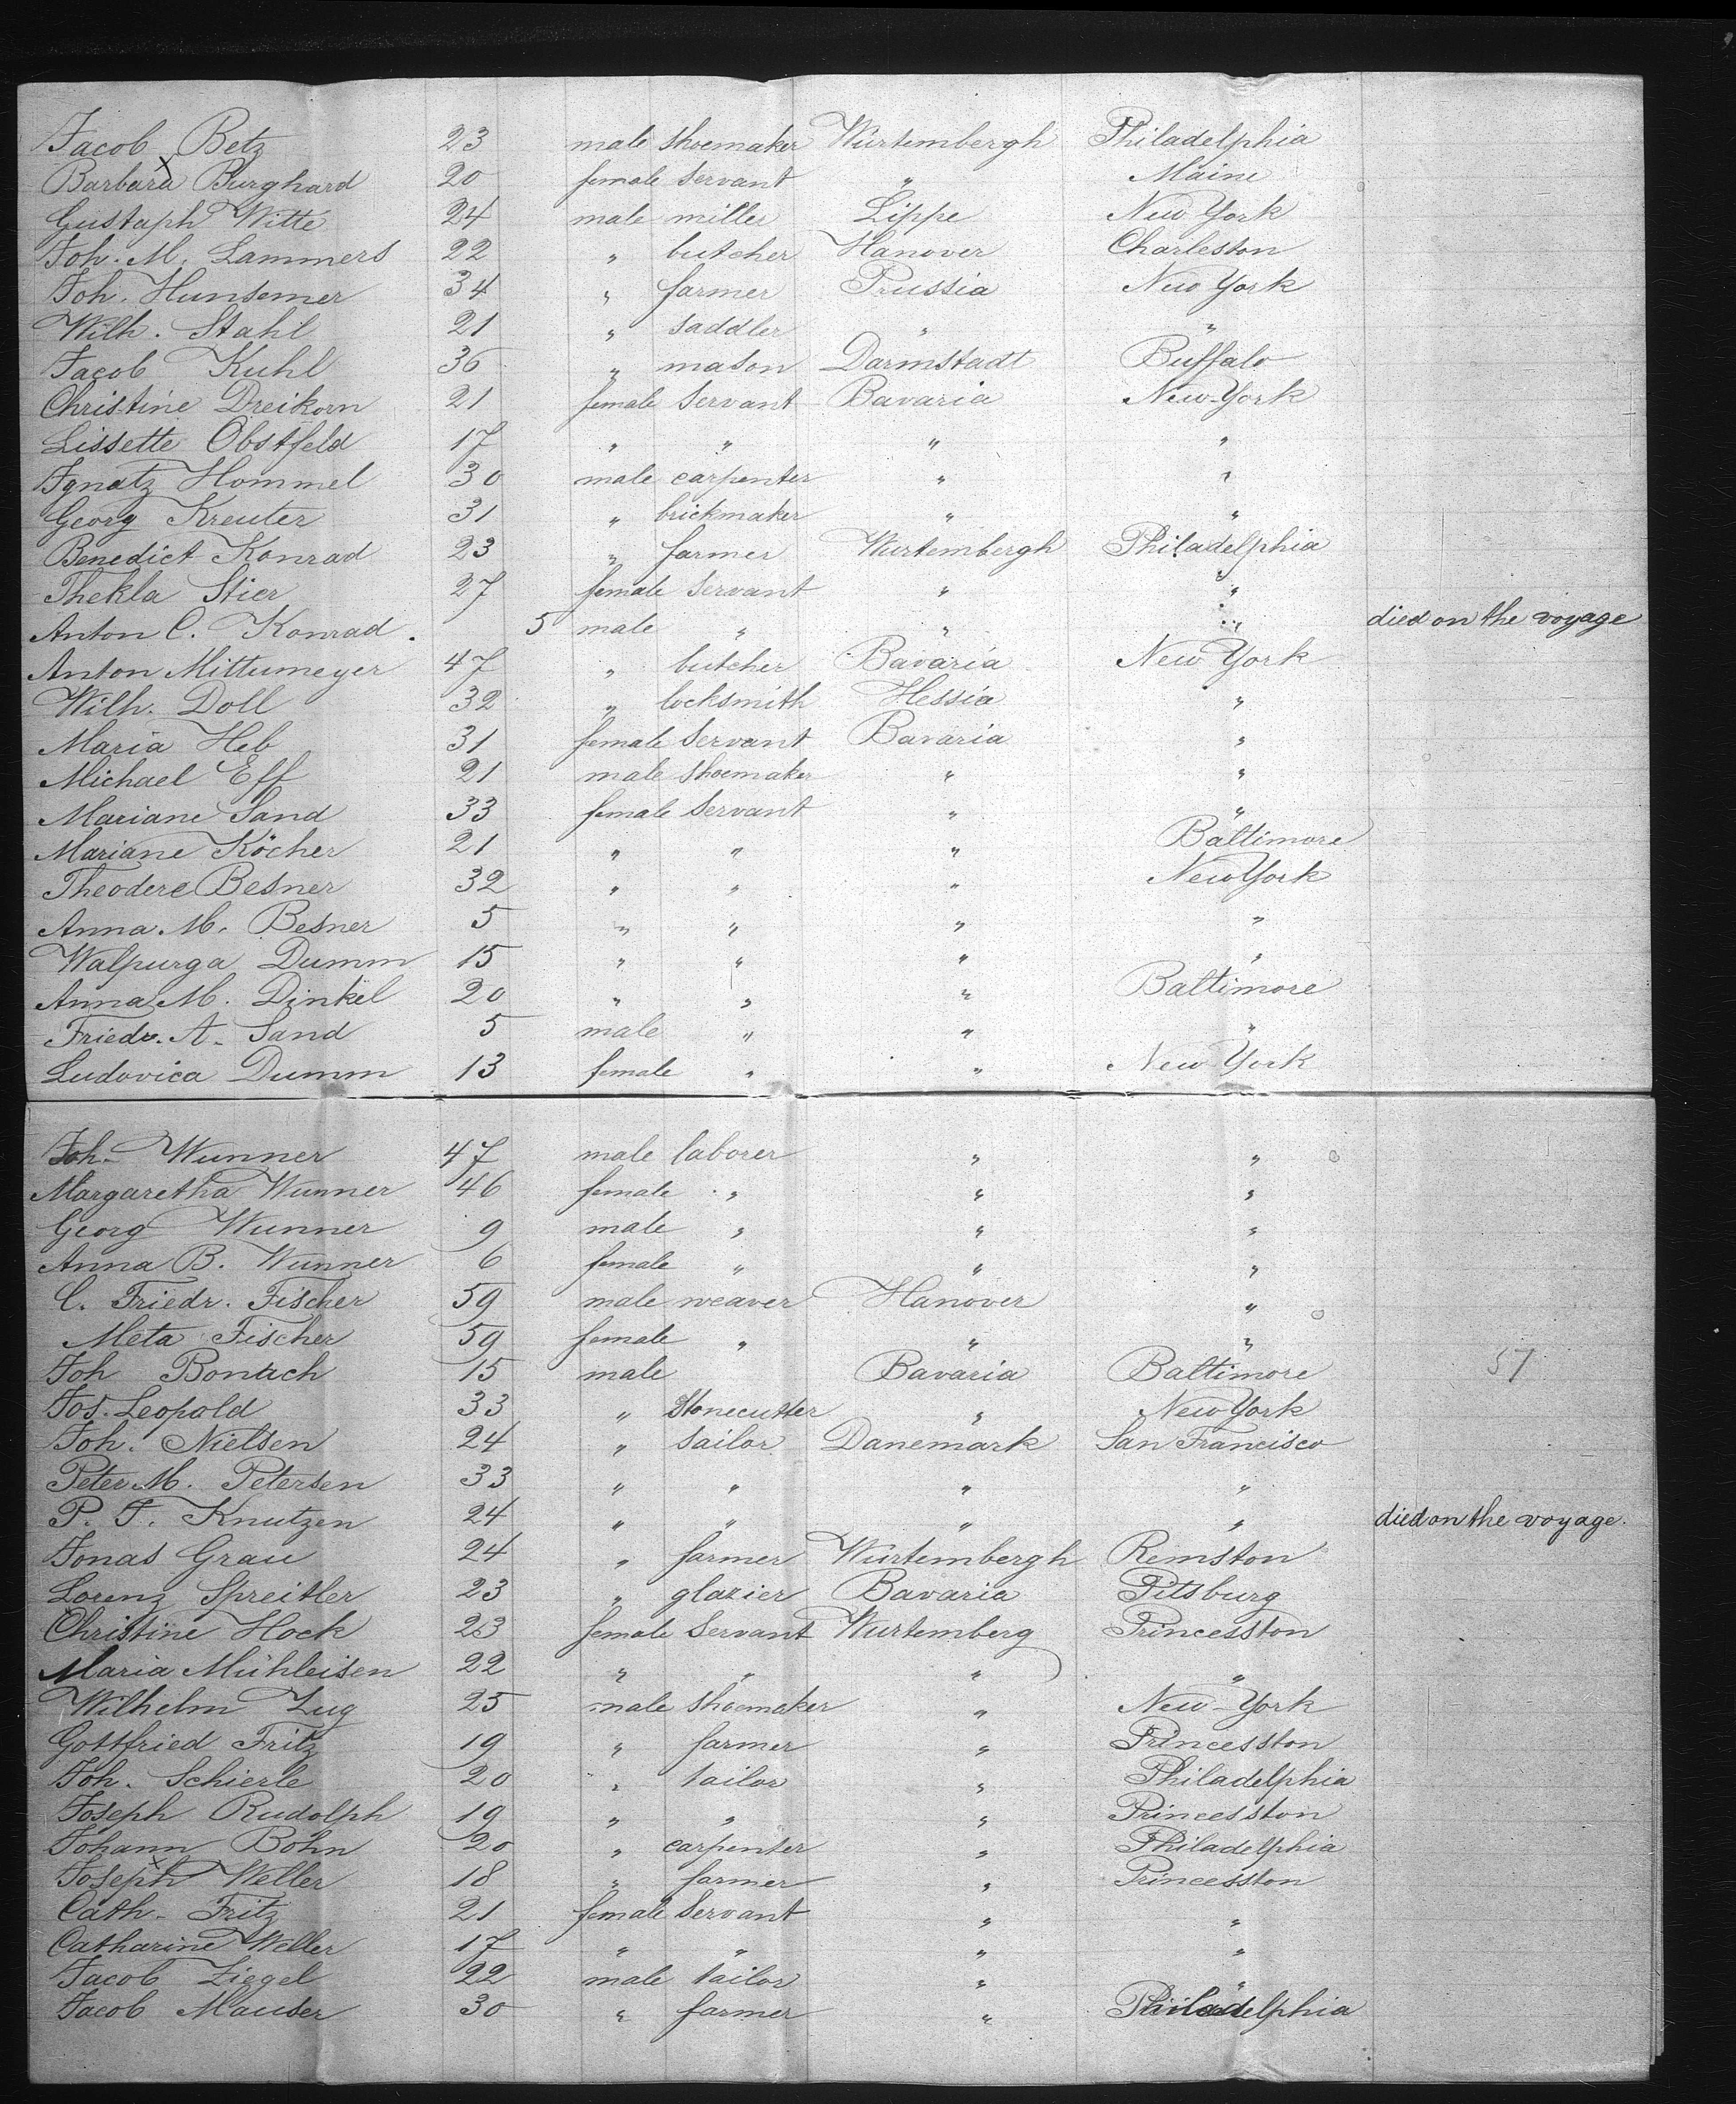 Jacob Betz 23 male shoemaker Würtembergh Philadelphia
Barbara Burghard 20 female servant " Maine
Gustaph Witte 24 male miller Lippe New York
Joh. M. Lammers 22 " butcher Hanover Charleston
Joh. Hunsemer 34 " farmer Prussia New York
Wilh. Stahl 21 " saddler " "
Jacob Kuhl 36 " mason Darmstadt Buffalo
Christine Dreikorn 21 female Servant Bavaria New-York
Lissette Obstfeld 17 " " " "
Ignatz Hommel 30 male carpenter " "
Georg Kreuter 31 " brickmaker " "
Benedict Konrad 23 " farmer Wurtembergh Philadelphia
Thekla Stier 27 female servant " "
Anton C. Konrad. 5 male " " " died on the voyage
Anton Mittumeyer 47 " butcher Bavaria New York
Wilh. Doll 32 " locksmith Hessia "
Maria Heb 31 female Servant Bavaria "
Michael Eff 21 male shoemaker " "
Mariane Sand 33 female Servant " "
Mariane Köcher 21 " " " Baltimore
Theodere Besner 32 " " " New York
Anna M. Besner 5 " " " "
Walpurga Dumm 15 " " " "
Anna M. Dinkel 20 " " " Baltimore
Friedr. A. Sand 5 male " " "
Ludovica Dumm 13 female " " New York
Joh. Wunner 47 male laborer " "
Margaretha Wunner 46 female " " "
Georg Wunner 9 male " " "
Anna B. Wunner 6 female " " "
C. Friedr. Fischer 59 male weaver Hanover "
Meta Fischer 59 female " " "
Joh Bonach 15 male Bavaria Baltimore 57
Jos. Leopold 33 " Stonecutter " New York
Joh. Nielsen 24 " sailor Danemark San Francisco
Peter M. Petersen 33 " " " "
P. T. Knutzen 24 " " " " died on the voyage.
Jonas Grau 24 " farmer Würtembergh Remston
Lorenz Spreitler 23 " glazier Bavaria Pitsburg
Christine Hock 23 female Servant Wurtemberg Princesston
Maria Mühleisen 22 " " " "
Wilhelm Zug 25 male shoemaker " New-York
Gottfried Fritz 19 " farmer " Princesston
Joh. Schierle 20 " tailor " Philadelphia
Joseph Rudolph 19 " " " Princesston
Johann Bohn 20 " carpenter " Philadelphia
Joseph Weller 18 " farmer " Princesston
Cath. Fritz 21 female Servant " "
Catharine Weller 17 " " " "
Jacob Ziegel 22 male tailor " "
Jacob Mauser 30 " farmer " Philadelphia